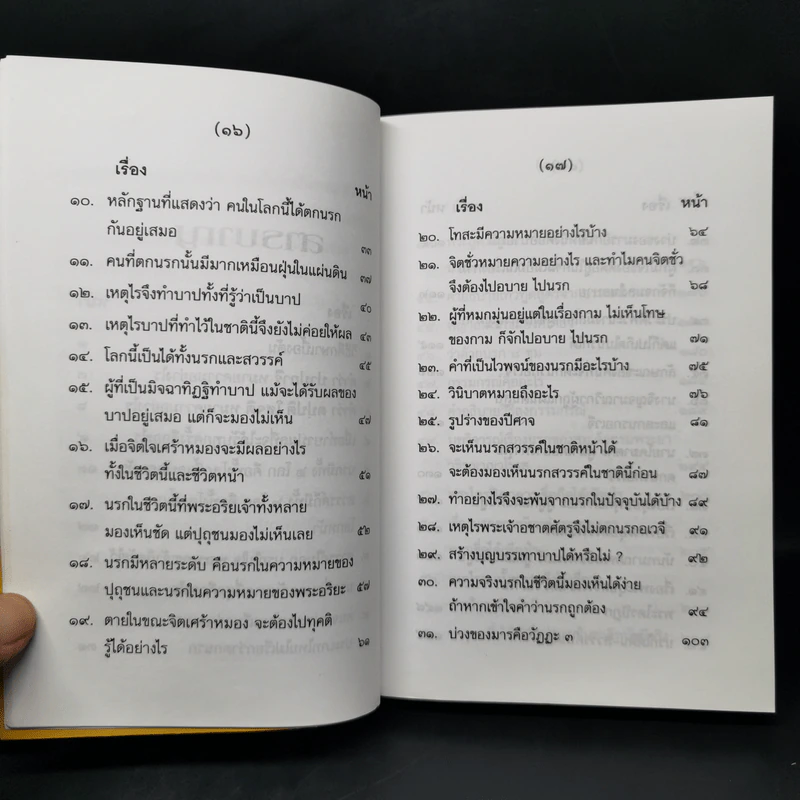 (๑๖)
เรื่อง หน้า
๑๐. หลักฐานที่แสดงว่า คนในโลกนี้ได้ตกนรก
กันอยู่เสมอ ๓๓
๑๑. คนที่ตกนรกนั้นมีมากเหมือนฝุ่นในแผ่นดิน ๓๗
๑๒. เหตุไรจึงทำบาปทั้งที่รู้ว่าเป็นบาป ๔๐
๑๓. เหตุไรบาปที่ทำไว้ในชาตินี้จึงยังไม่ค่อยให้ผล ๔๓
๑๔. โลกนี้เป็นได้ทั้งนรกและสวรรค์ ๔๕
๑๕. ผู้ที่เป็นมิจฉาทิฏฐิทำบาป แม้จะได้รับผลของ
บาปอยู่เสมอ แต่ก็จะมองไม่เห็น ๔๗
๑๖. เมื่อจิตใจเศร้าหมองจะมีผลอย่างไร
ทั้งในชีวิตนี้และชีวิตหน้า ๕๑
๑๗. นรกในชีวิตนี้ที่พระอริยเจ้าทั้งหลาย
มองเห็นชัด แต่ปุถุชนมองไม่เห็นเลย ๕๒
๑๘. นรกมีหลายระดับ คือนรกในความหมายของ
ปุถุชนและนรกในความหมายของพระอริยะ ๕๗
๑๙. ตายในขณะจิตเศร้าหมอง จะต้องไปทุคติ
รู้ได้อย่างไร ๖๑
(๑๗)
เรื่อง หน้า
๒๐. โทสะมีความหมายอย่างไรบ้าง ๖๔
๒๑. จิตชั่วหมายความอย่างไร และทำไมคนจิตชั่ว
จึงต้องไปอบาย ไปนรก ๖๘
๒๒. ผู้ที่หมกมุ่นอยู่แต่ในเรื่องกาม ไม่เห็นโทษ
ของกาม ก็จักไปอบาย ไปนรก ๗๑
๒๓. คำที่เป็นไวพจน์ของนรกมีอะไรบ้าง ๗๕
๒๔. วินิบาตหมายถึงอะไร ๗๖
๒๕. รูปร่างของปีศาจ ๘๑
๒๖. จะเห็นนรกสวรรค์ในชาติหน้าได้
จะต้องมองเห็นนรกสวรรค์ในชาตินี้ก่อน ๘๗
๒๗. ทำอย่างไรจึงจะพ้นจากนรกในปัจจุบันได้บ้าง ๘๙
๒๘. เหตุไรพระเจ้าอชาตศัตรูจึงไม่ตกนรกอเวจี ๙๑
๒๙. สร้างบุญบรรเทาบาปได้หรือไม่ ? ๙๒
๓๐. ความจริงนรกในชีวิตนี้มองเห็นได้ง่าย
ถ้าหากเข้าใจคำว่านรกถูกต้อง ๙๔
๓๑. บ่วงของมารคือวัฏฏะ ๓ ๑๐๓